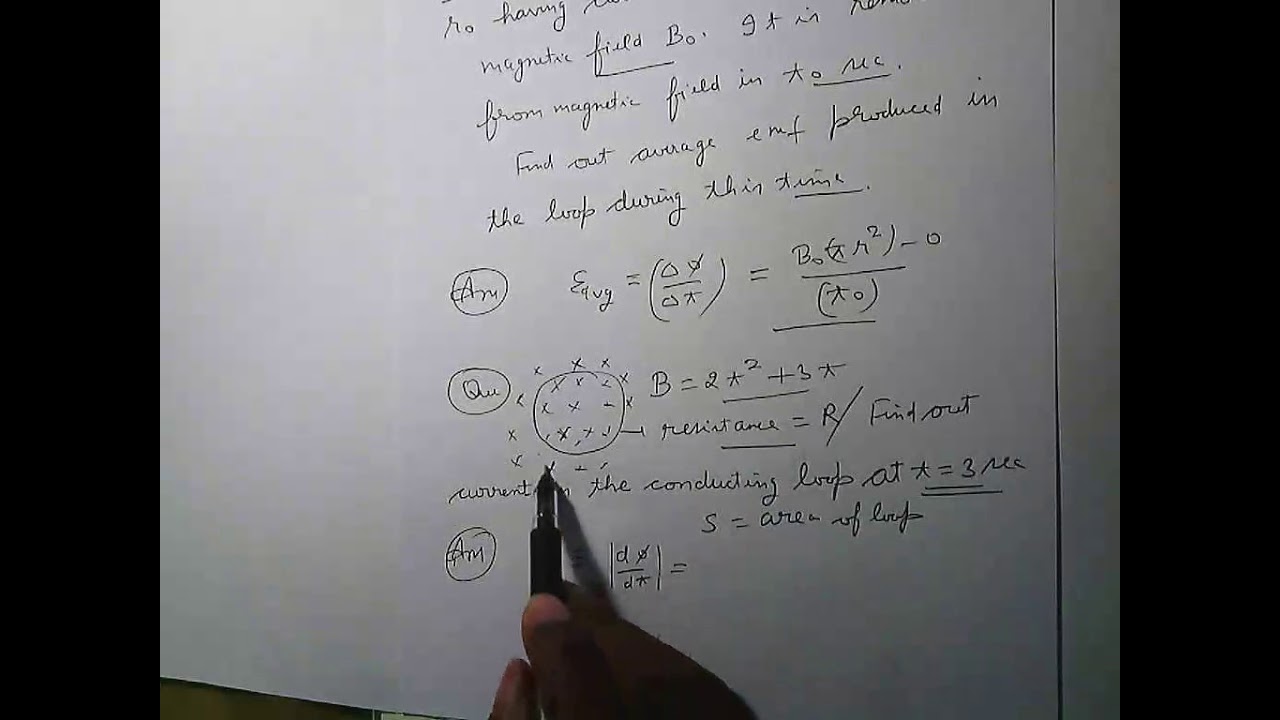 r₀ having
magnetic field B₀. It is
from magnetic field in t₀ sec.
Find out average emf produced in
the loop during this time.
Ans ℰavg = (Δφ/Δt) = (B₀(πr²) - 0)/(t₀)
Qu B = 2t² + 3t
resistance = R/ Find out
current in the conducting loop at t = 3 sec
S = area of loop
Ans = |dφ/dt| =